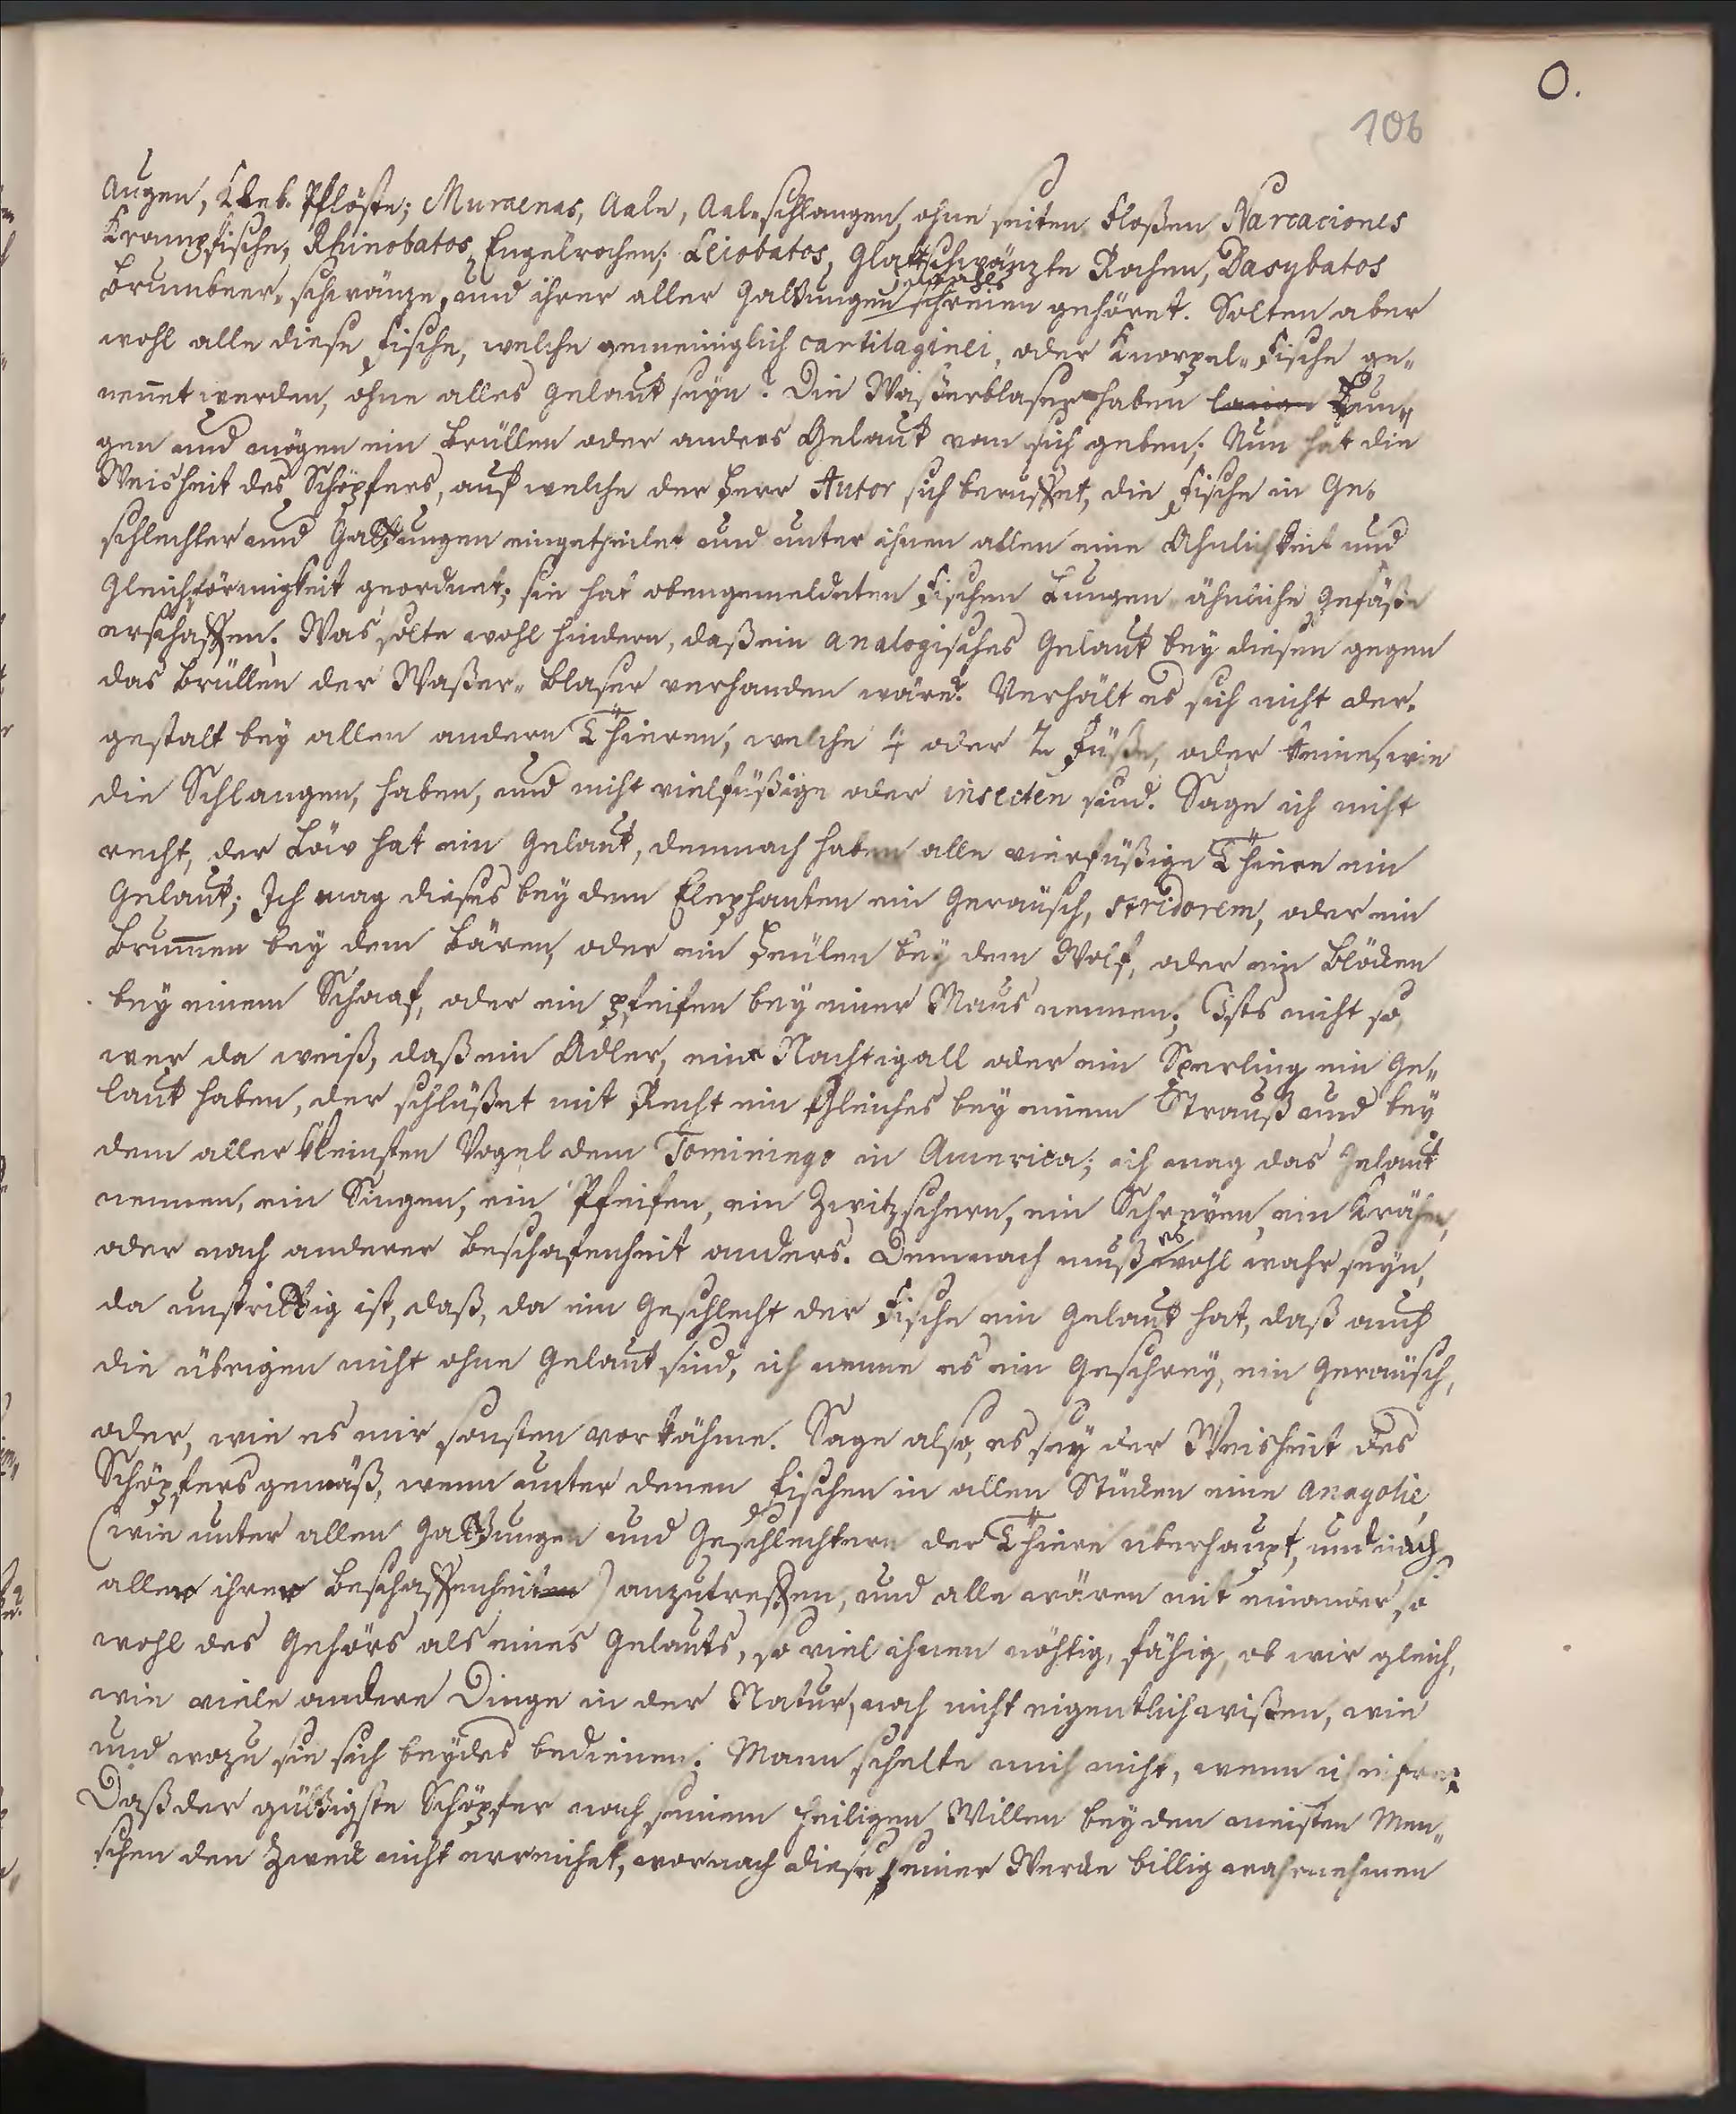 O.
106
Augen, Kleb. Pflöste; Muraenas, Aale, Aal-schlangen, ohne seiten Floßen Narcaciones
Krampfische, Rhinobatos, Engelrochen; Leiobatos, Glattschwänzte Rochen, Dasybatos
Brumbeer-schwänze, und ihrer aller Gattungen schreien gehöret. Solten aber
wohl alle diese Fische, welche gemeiniglich cartilaginei, oder Knorpel-Fische ge-
nennet werden, ohne alles Gelaut seyn? Die Waßerblaser haben lange Lun-
gen und mögen ein Brüllen oder anders Gelaut von sich geben; Nun hat die
Weisheit des Schöpfers, auf welche der Herr Autor sich beruffet, die Fische in Ge-
schlechter und Gattungen eingetheilet und unter ihnen allen eine Ähnlichkeit und
Gleichförmigkeit geordnet; sie hat obengemeldeten Fischen Lungen ähnliche Gefäße
erschaffen. Was solte wohl hindern, daß ein analogisches Gelaut bey diesen gegen
das Brüllen der Waßer-Blaser verhanden wäre? Verhält es sich nicht der-
gestalt bey allen andern Thieren, welche 4 oder 2 Füße, oder keine, wie
die Schlangen, haben, und nicht vielfüßige oder insecten sind. Sage ich nicht
recht, der Löw hat ein Gelaut, demnach haben alle vierfüßige Thiere ein
Gelaut; Ich mag dieses bey dem Elephanten ein Geräusch, stridorem, oder ein
Brummen bey dem Bären, oder ein Heülen bey dem Wolf, oder ein Blöcken
bey einem Schaaf, oder ein pfeifen bey einer Maus nennen; Ists nicht so,
wer da weiß, daß ein Adler, eine Nachtigall oder ein Sperling ein Ge-
laut haben, der schlüßet mit Recht ein Gleiches bey einem Strauß und bey
dem aller kleinsten Vogel dem Tominingo in America; ich mag das Gelaut
nennen, ein Singen, ein Pfeifen, ein Zwitzschern, ein Schreyen, ein Krähen,
oder nach anderer Beschafenheit anders. Demnach muß es wohl wahr seyn,
da unstrittig ist, daß, da ein Geschlecht der Fische ein Gelaut hat, daß auch
die übrigen nicht ohne Gelaut sind, ich nenne es ein Geschrey, ein Geräusch,
oder, wie es mir sonsten vorkähme. Sage also, es sey der Weisheit des
Schöpfers gemäß, wenn unter denen Fischen in allen Stücken eine anagolie
(wie unter allen Gattungen und Geschlechtern der Thiere überhaupt, und nach
aller ihrer Beschaffenheiten) anzutreffen, und alle wären mit einander so
wohl des Gehörs als eines Gelauts, so viel ihnen nöhtig, fähig, ob wir gleich,
wie viele andere Dinge in der Natur, noch nicht eigentlich wißen, wie
und wozu sie sich beydes bedienen. Mann schelte mich nicht, wenn ich
Daß der gütigste Schöpfer nach seinem heiligen Willen bey den meisten Men-
schen den Zweck nicht erreichet, wornach diese seiner Wercke billig wahrnehmen